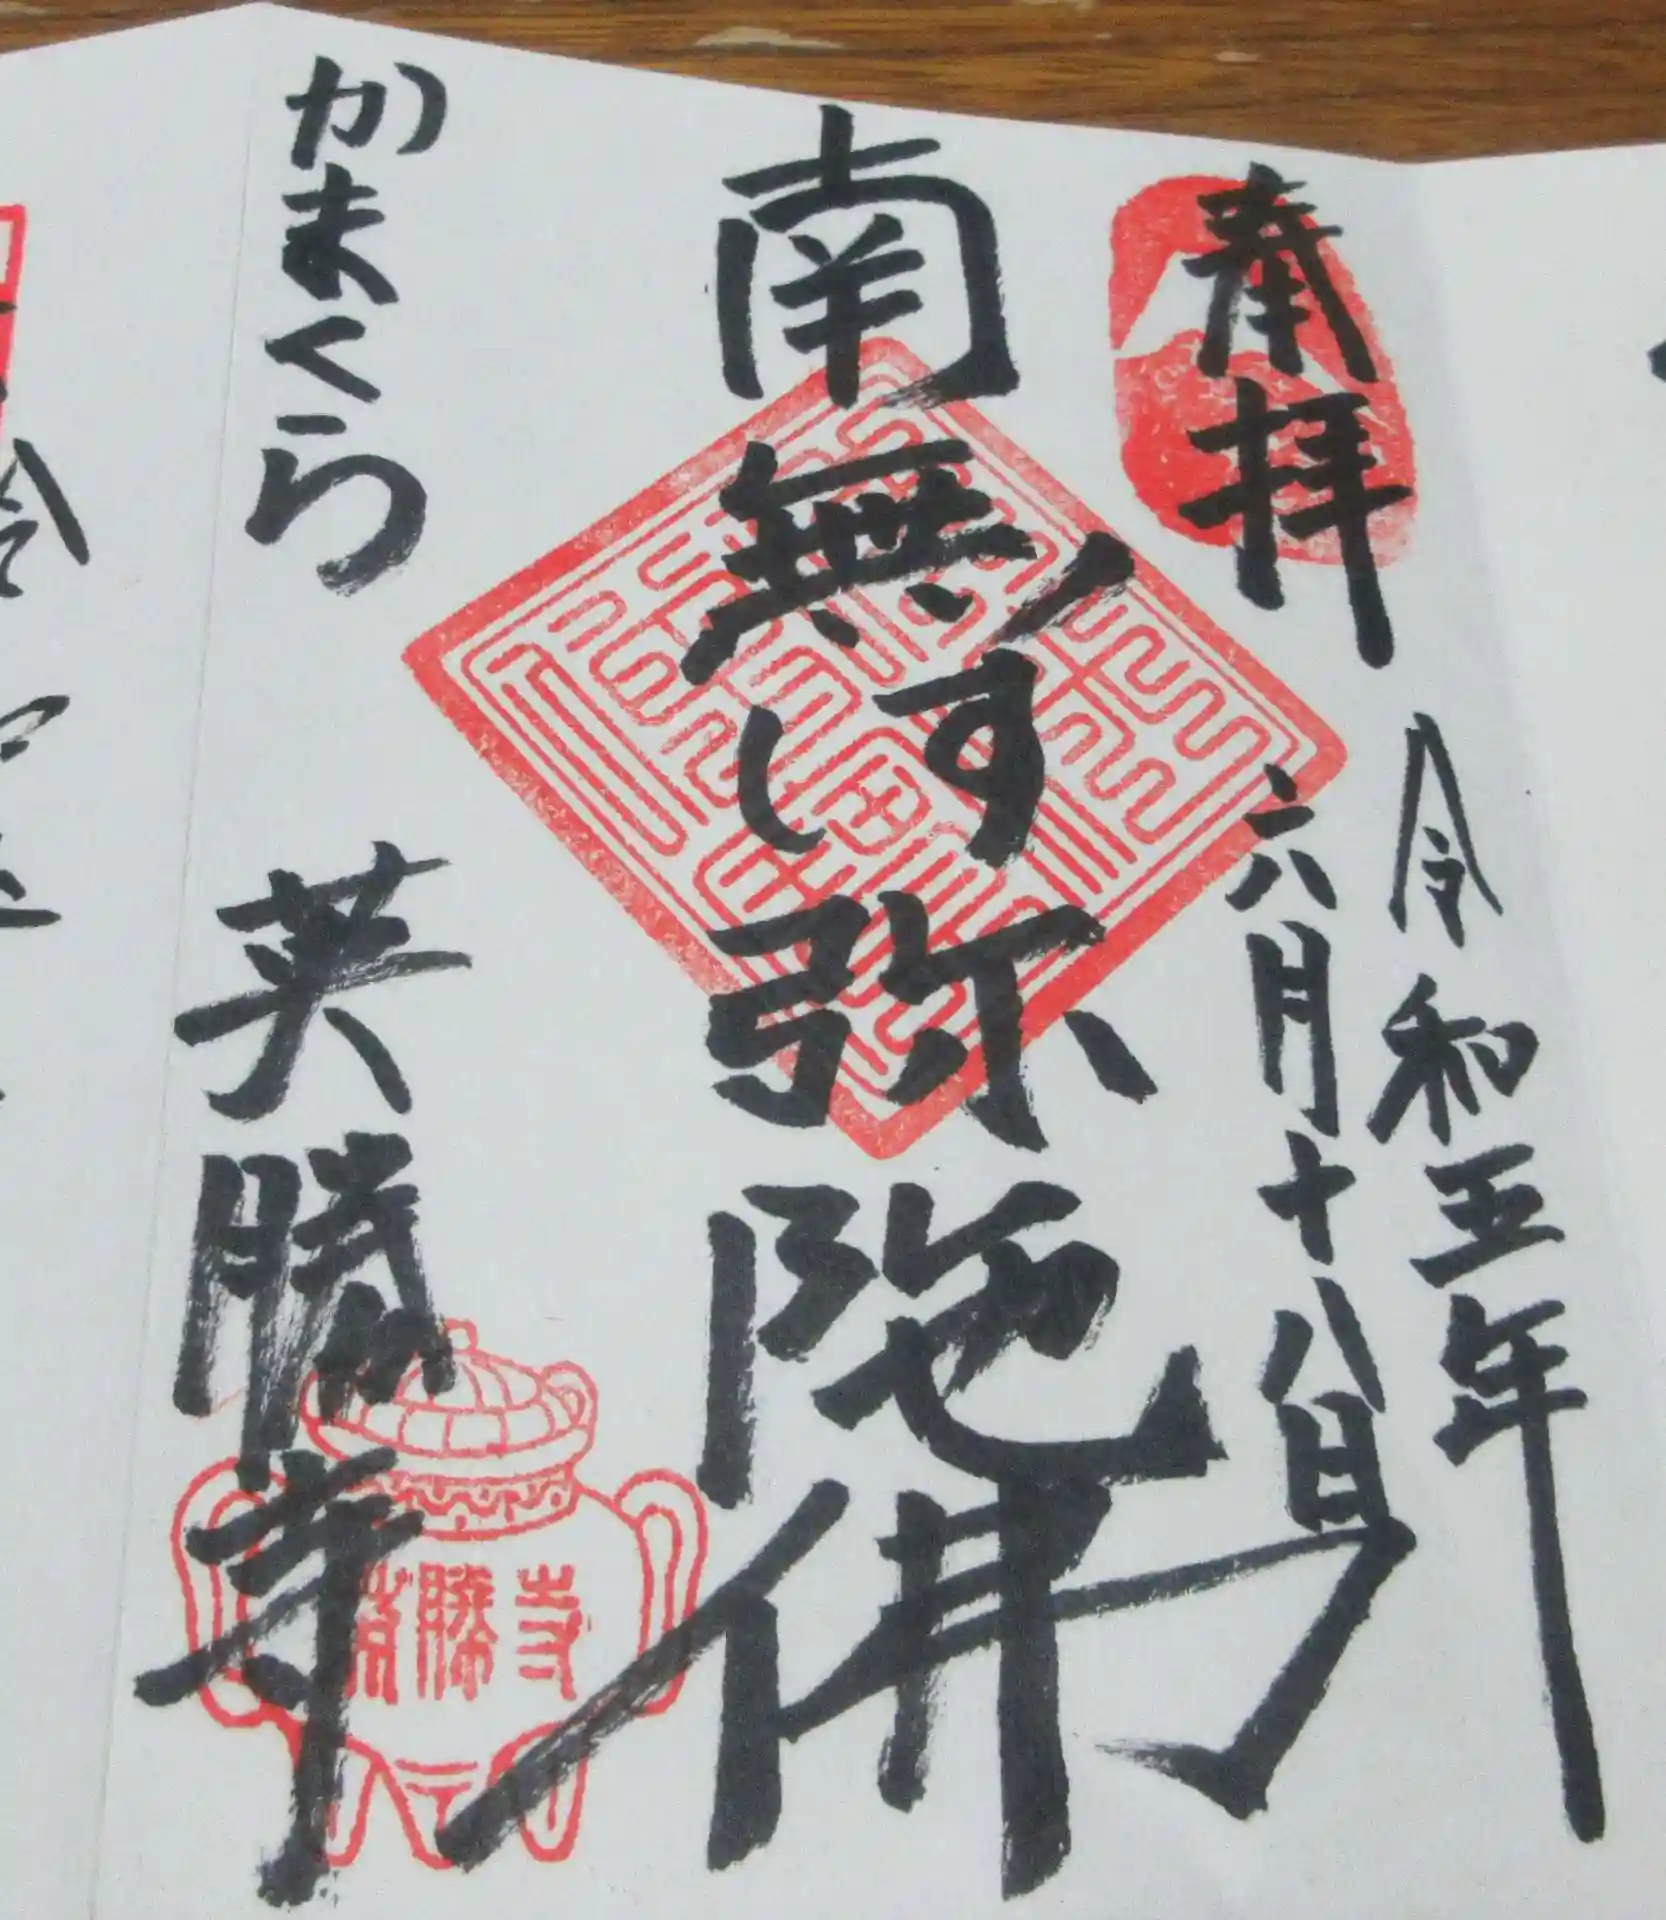 奉拝
令和五年
六月十八日
南無阿弥陀佛
かまくら 英勝寺
英勝寺
令和五